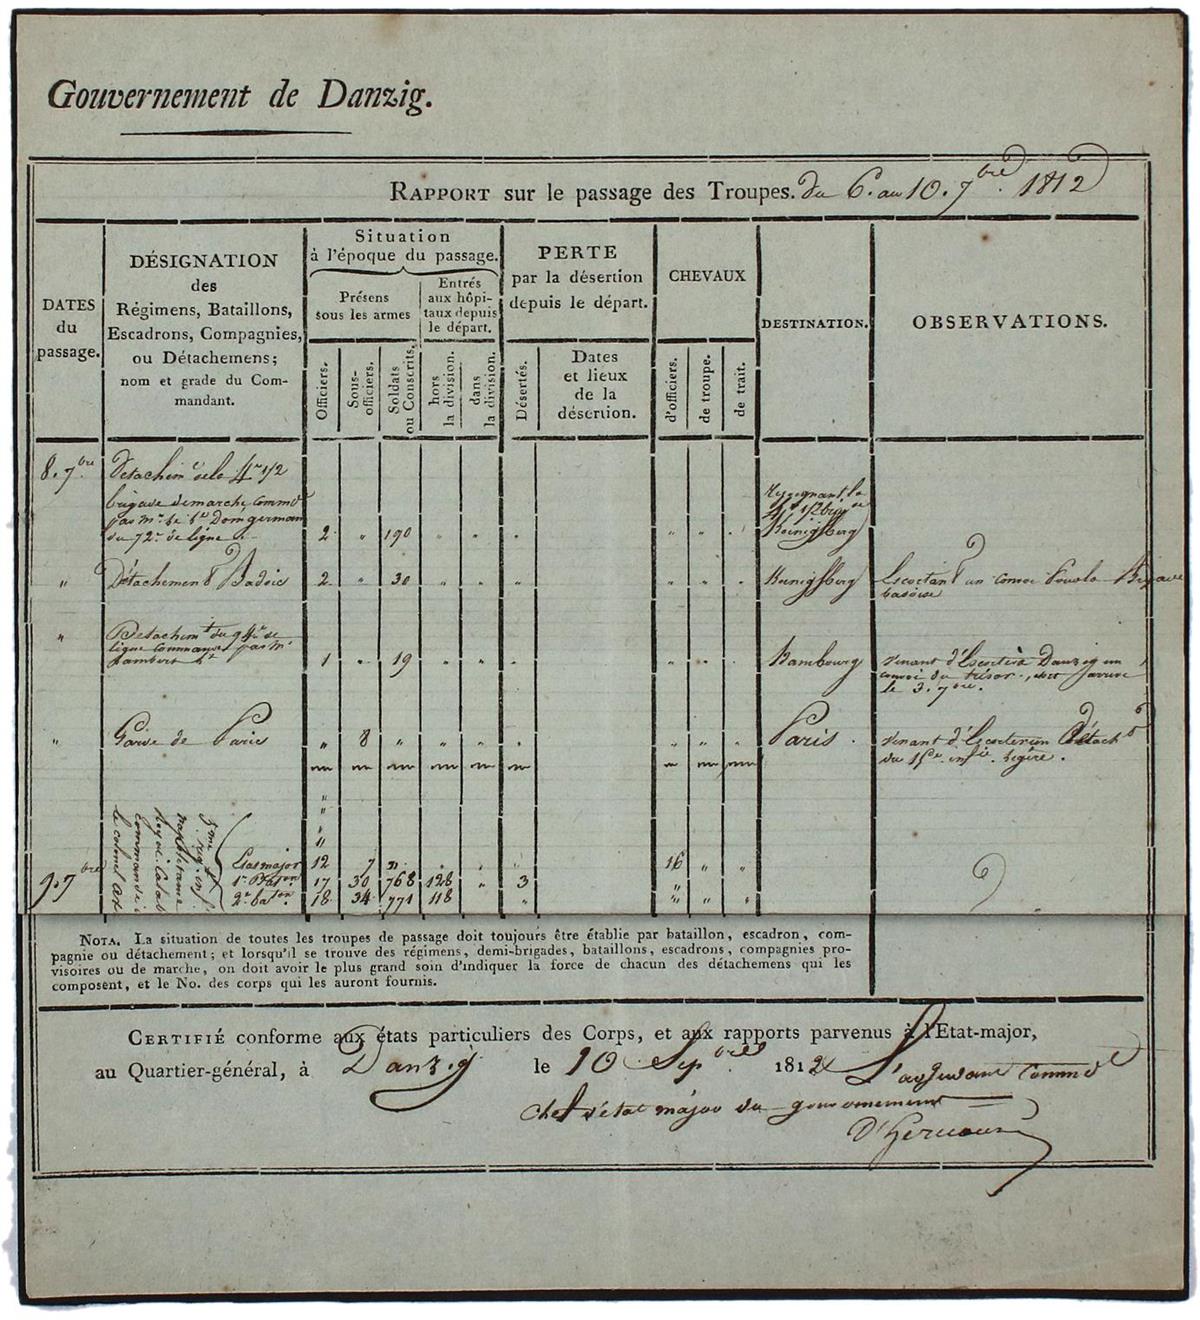 Gouvernement de Danzig.
RAPPORT sur le passage des Troupes. du 6. au 10. 7bre. 1812
DATES
du
passage.
DÉSIGNATION
des
Régimens, Bataillons,
Escadrons, Compagnies,
ou Détachemens;
nom et grade du Com-
mandant.
Situation
à l'époque du passage.
Présens
sous les armes
Entrés
aux hôpi-
taux depuis
le départ.
Officiers.
Sous-
officiers.
Soldats
ou Conscrits.
hors
la division.
dans
la division.
PERTE
par la désertion
depuis le départ.
Désertés.
Dates
et lieux
de la
désertion.
CHEVAUX
d'officiers.
de troupe.
de trait.
DESTINATION.
OBSERVATIONS.
8. 7bre
Détachemt de la 4me 1/2
brigade de marche, commdé
par Mr le Domgermain
du 72e de ligne
2 " 190 " " " " " "
la 4e 1/2 brigade
Kœnigsberg
" Détachement Badois 2 " 30 " " " " " " Kœnigsberg
Escortant un convoi Pour la Brigade
badoise
" Détachemt du 94e de
ligne commandé par Mr
Lambert Lt
1 " 19 " " " " " " Hambourg
venant d'Escorter à Danzig un
convoi du trésor, doit
le 3. 7bre.
" Garde de Paris " 8 " " " " " " " Paris.
venant d'Escorter un Détacht
du 15e infie légère.
9. 7bre
5me regt infie
napolitaine
Royal Calab
commandé
le colonel
Etat major 12 7 " " " " 16 " "
1er Baton. 17 30 768 128 " 3 " " "
2e baton. 18 34 771 118 " " " "
NOTA. La situation de toutes les troupes de passage doit toujours être établie par bataillon, escadron, com-
pagnie ou détachement; et lorsqu'il se trouve des régimens, demi-brigades, bataillons, escadrons, compagnies pro-
visoires ou de marche, on doit avoir le plus grand soin d'indiquer la force de chacun des détachemens qui les
composent, et le No. des corps qui les auront fournis.
CERTIFIÉ conforme aux états particuliers des Corps, et aux rapports parvenus à l'Etat-major,
au Quartier-général, à Danzig le 10 Sepbre 1812 L'adjudant Commdt
chef d'état major du gouvernement
D'Hericourt